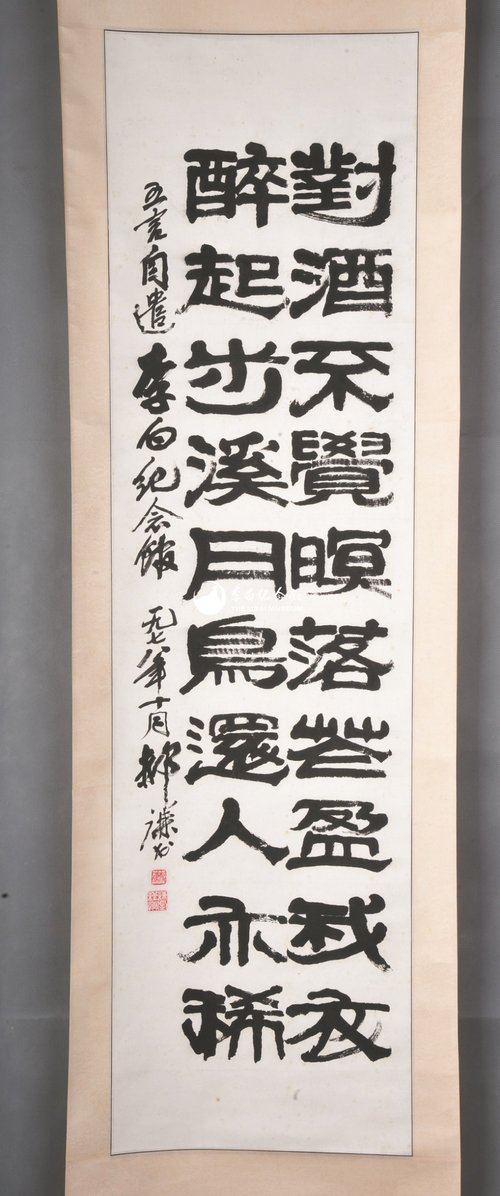 對酒不覺暝落花盈我衣
醉起步溪月鳥還人亦稀
五言自遣 李白纪念馆 一九七八年十月 柳谦书
李白纪念馆
THE LIBAI MUSEUM